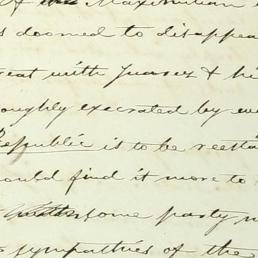 Of the Maximilian
is doomed to disappea
reat with Juarez & hi
oughly execrated by eve
Republic is to be reesta
ould find it more to
some party
sympathies of the